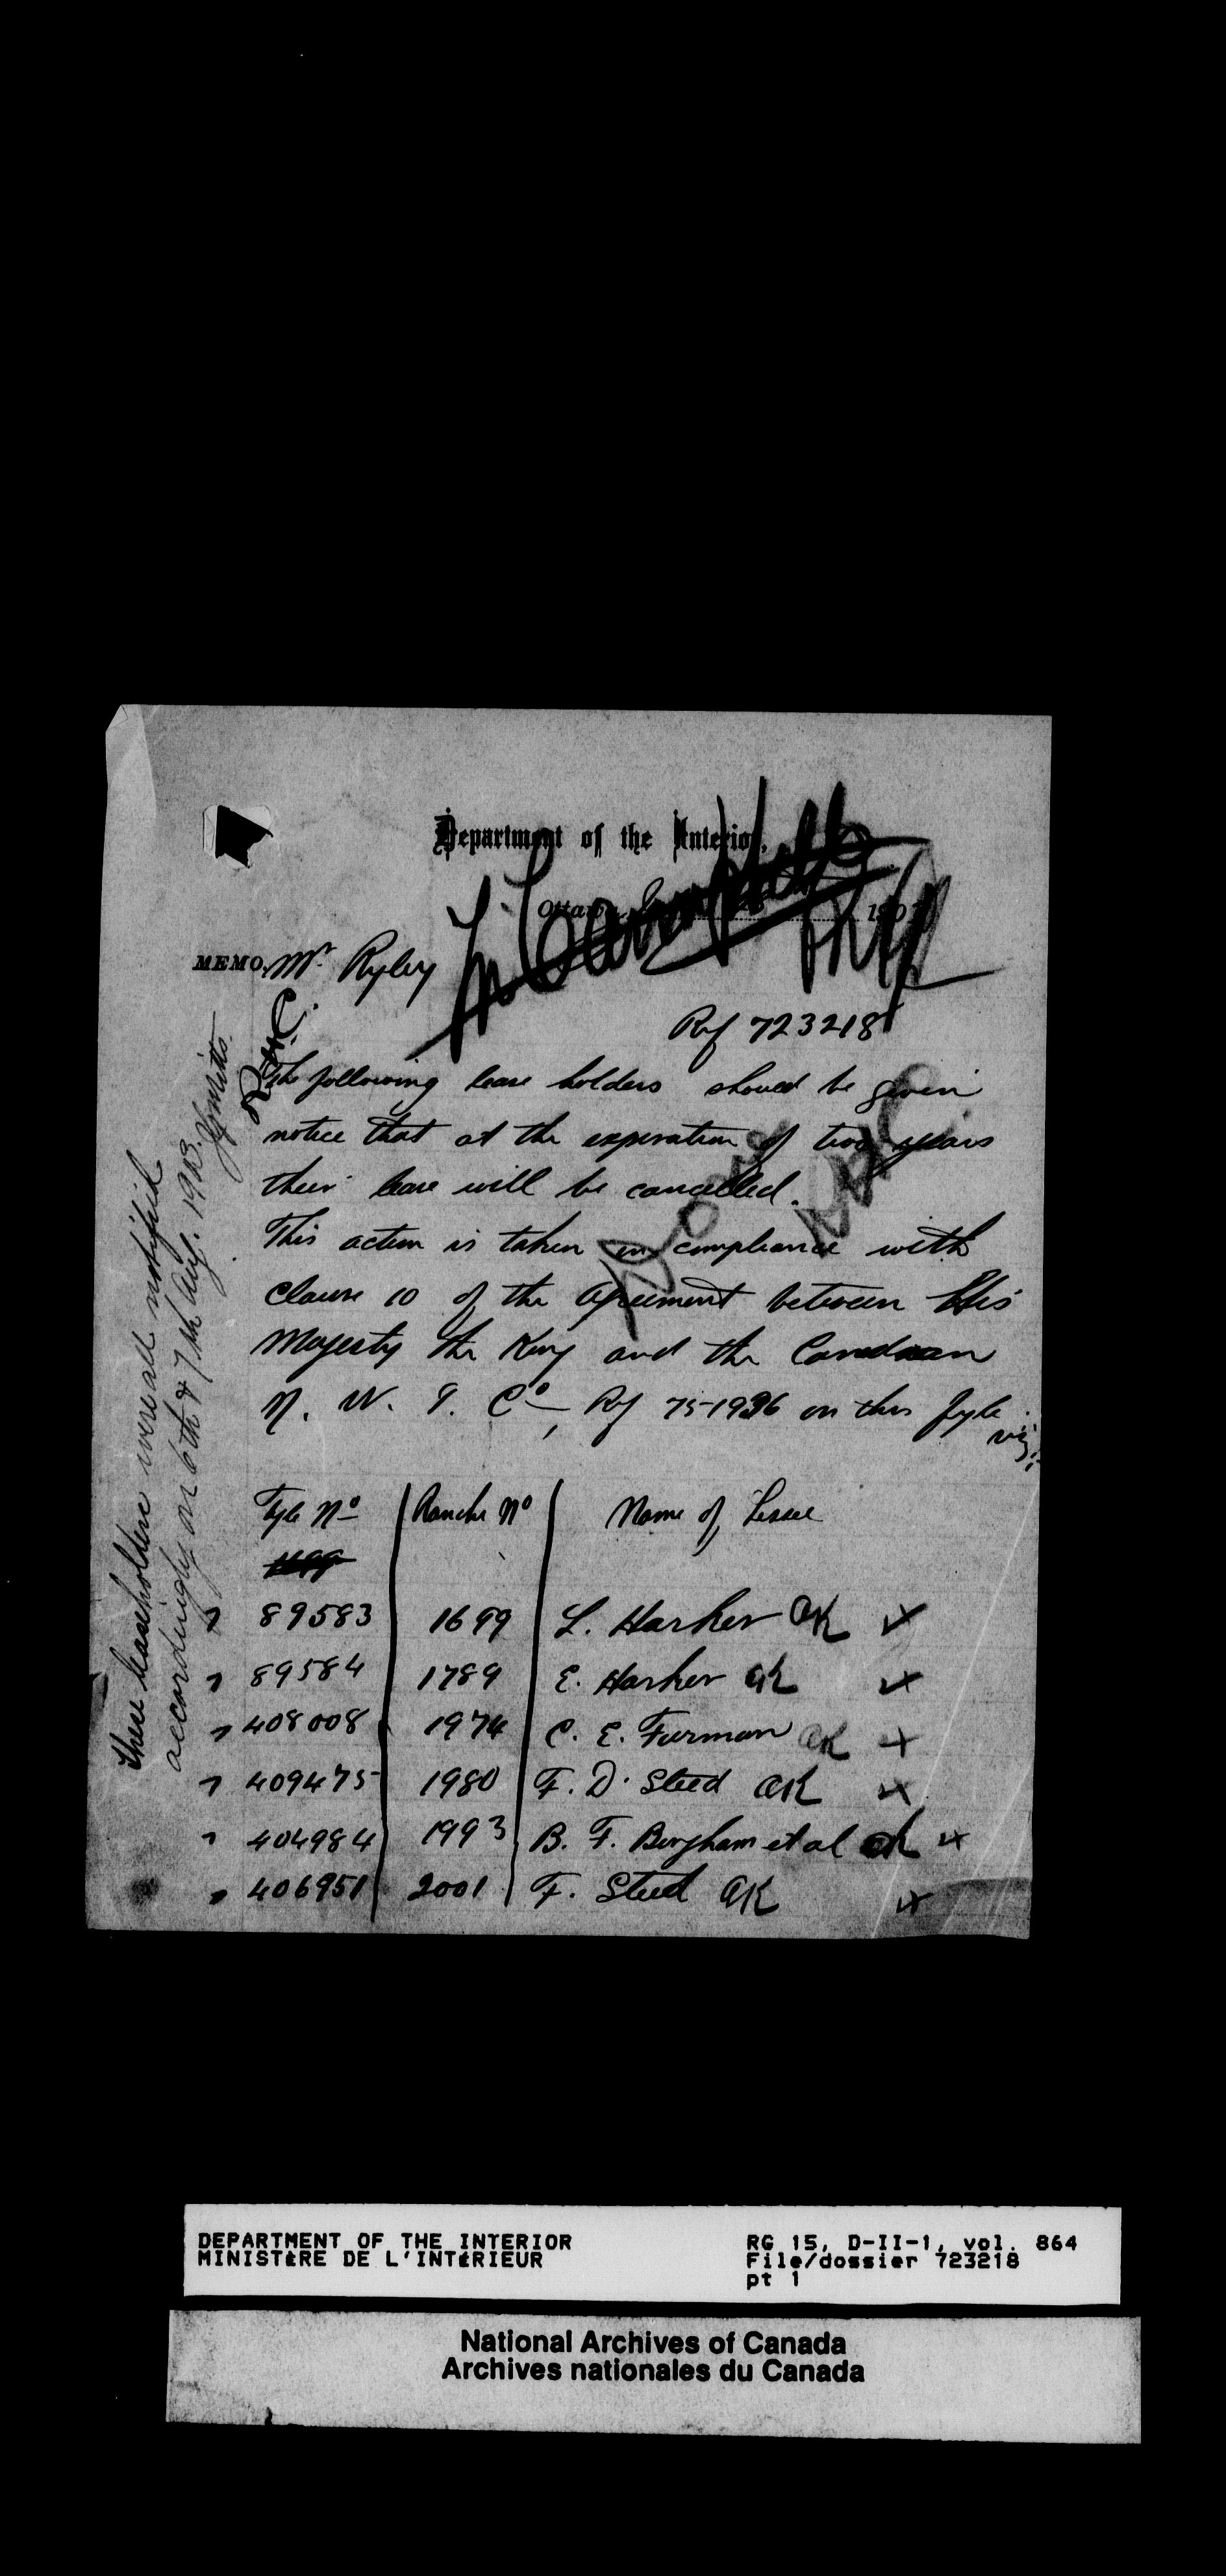 Department of the Interior,
Ottawa, 190
MEMO. Mr Ryley
Ref 723218
The following lease holders should be given
notice that at the experation of two years
their lease will be cancelled.
This action is taken in compliance with
Clause 10 of the agreement between His
Majesty the King and the Canadian
N. W. I. Co, Ref 751936 on this fyle
viz:
Fyle No Ranche No Name of Lessee
" 89583 1699 L. Harker OK
" 89584 1789 E. Harker OK
" 408008 1974 C. E. Furman OK
" 409475 1980 F. D. Steed OK
" 404984 1993 B. F. Bingham et al OK
" 406951 2001 F. Steed OK
These leaseholders were all notified
accordingly on 6th & 7th Aug. 1903.
DEPARTMENT OF THE INTERIOR
MINISTÈRE DE L'INTÉRIEUR
RG 15, D-II-1, vol. 864
File/dossier 723218
pt 1
National Archives of Canada
Archives nationales du Canada